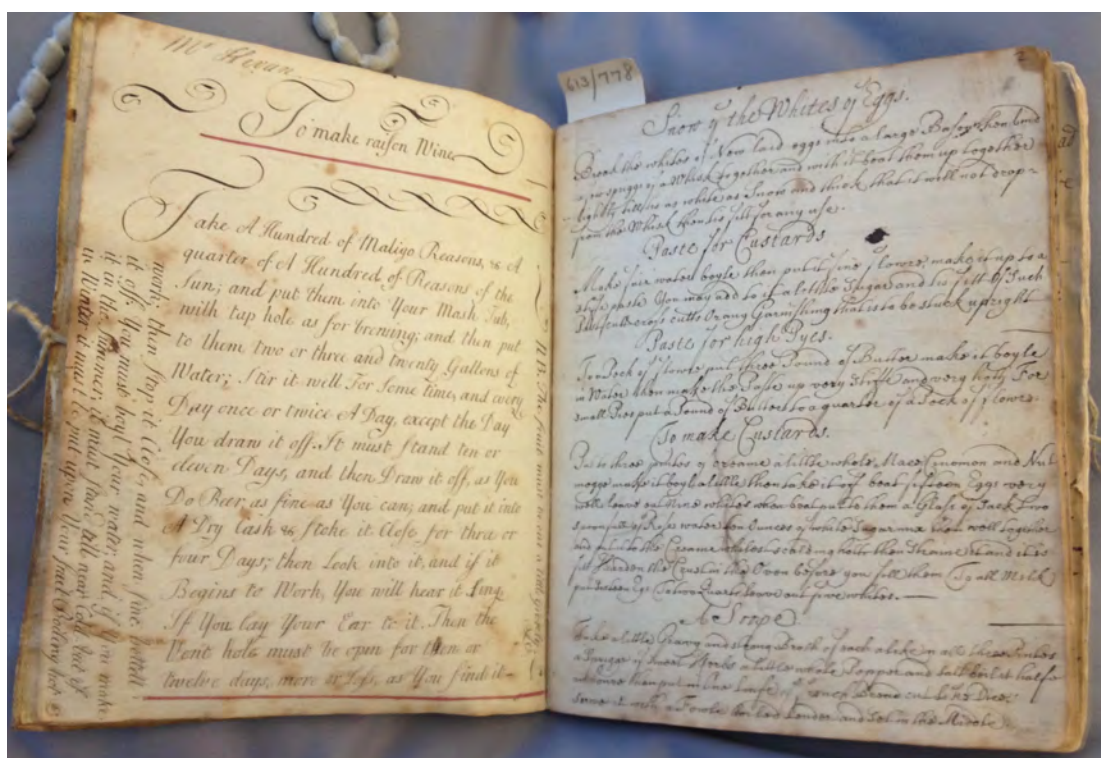 Mr Hevan
To make raisen Wine
Take A Hundred of Maligo Reasons, & A
quarter of A Hundred of Reasons of the
Sun; and put them into Your Mash Tub,
with tap hole as for brewing; and then put
to them two or three and twenty Gallons of
Water; Stir it well For Some time, and every
Day once or twice A Day, except the Day
You draw it off. It must Stand ten or
eleven Days, and then Draw it off, as You
Do Beer, as fine as You can; and put it into
A Dry Cask & Stoke it Close for three or
four Days; then Look into it, and if it
Begins to Work, You will hear it Sing
If You lay Your Ear to it. Then the
Vent hole must be open for then or
twelve days, more or Less, as You find it
work; then Stop it Close, and when fine bottell
it off. You must boyl Your water; and if You make
it in the Summer; it must Stand till near Cold, but if
in Winter it must be put upon Your fruit Boiling hot
NB. The fruit must be cut a little
2
613/778
Snow of the Whites of Eggs.
Break the whites of New laid eggs into a large Bason then bind
of a Whisk together and with it beat them up together
lightly till tis as white as Snow and thick that it will not drop
from the Whisk then tis fitt for any use.
Paste for Custards
Make fair water boyle then put it fine flower; make it up to a
stiffe paste You may add to it a little Sugar and tis fitt for Such
cross cutts Orang Garnishing that is to be stuck upright
Paste for high Pyes.
To a Peck of flower put three Pound of Butter make it boyle
in Water then make the Paste up very Stiffe and very hott For
small Pies put a Pound of Butter to a quarter of a Peck of flower.
To make Custards.
Put to three pintes of creame a little whole Mace Cinomon and Nut
megge make it boyl a little then take it of beat fifteen Eggs very
well leave out five whites when beat put to them a Glass of Sack two
spoonfulls of Rose water ten Ounces of white Sugar mix them well together
and put to the Creame scalding hott then straine it and it is
fitt Harden the Crust in the Oven before you fill them
leave out five whites.
A Soope
Take a little Gravy and strong Broth of each alike in all three Pintes
of sweet Herbs a little whole Pepper and salt boil it half
an houre then put in
serve it with a Fowle boiled tender and set in the Middle